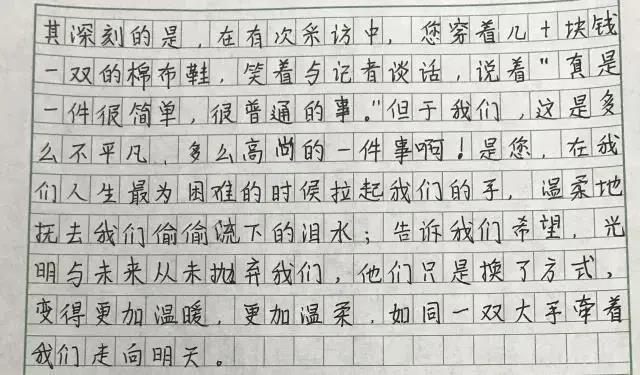 其深刻的是，在有次采访中，您穿着几十块钱
一双的棉布鞋，笑着与记者谈话，说着“真是
一件很简单，很普通的事。”但于我们，这是多
么不平凡，多么高尚的一件事啊！是您，在我
们人生最为困难的时候拉起我们的手，温柔地
抚去我们偷偷流下的泪水；告诉我们希望，光
明与未来从未抛弃我们，他们只是换了方式，
变得更加温暖，更加温柔，如同一双大手牵着
我们走向明天。